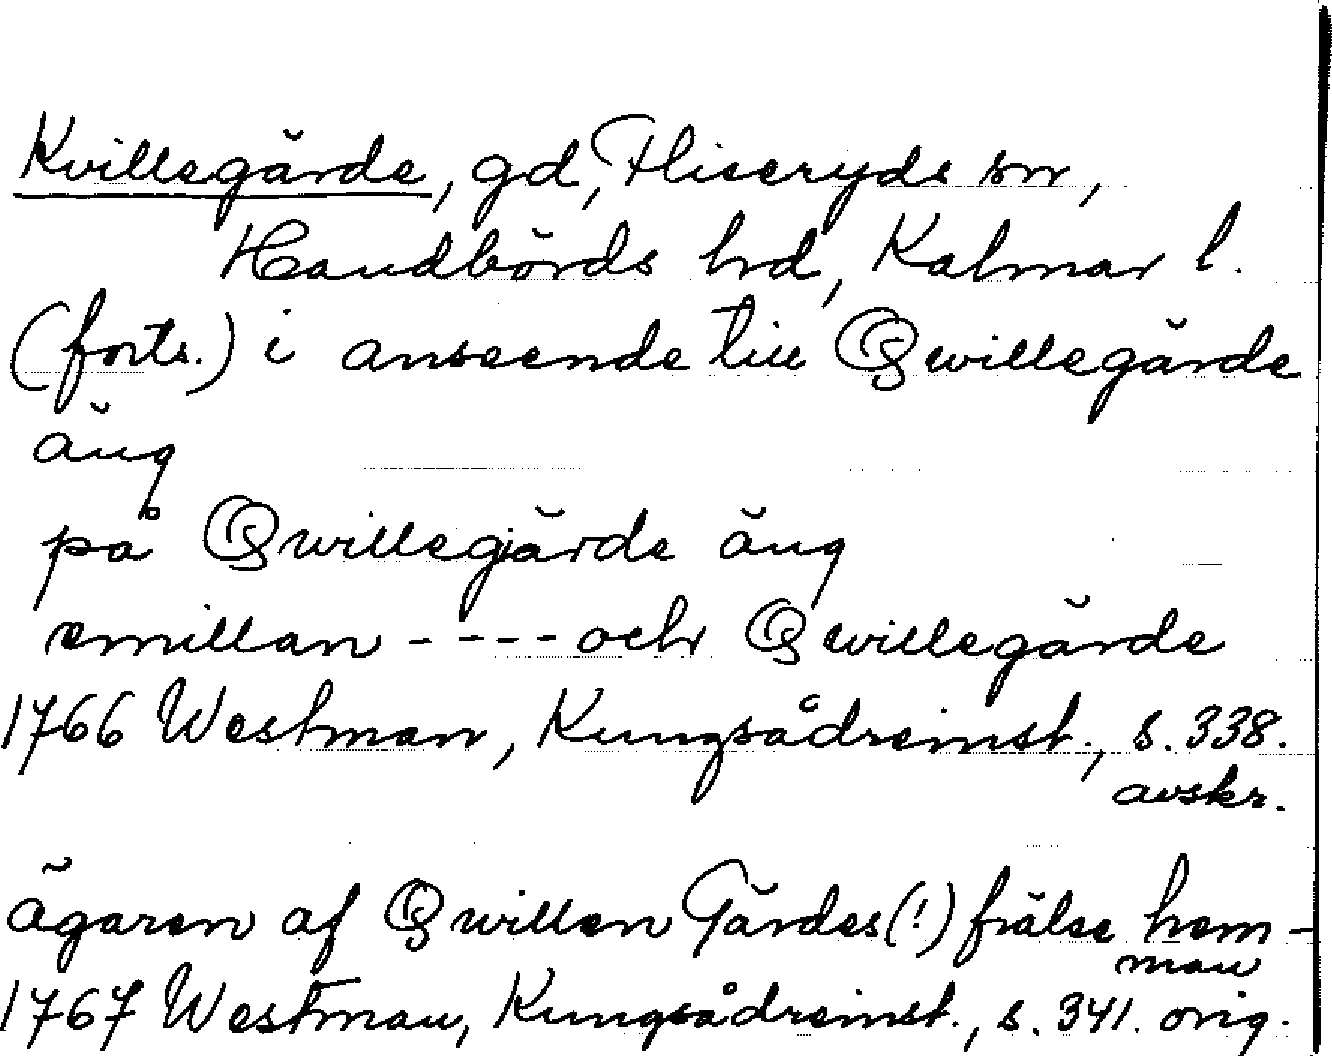 Kvillegärde, gd, Fliseryds sn,
Handbörds hd, Kalmar l.
(forts.) i anseende till Qwillegärde
äng
på Qwillegjärde äng
emillan - - - - och Qwillegärde
1766 Westman, Kungsådreinst., s. 338.
avskr.
Ägaren af Qwillen Gärdes(!) frälse hem-
man
1767 Westman, Kungsådreinst., s. 341. orig.